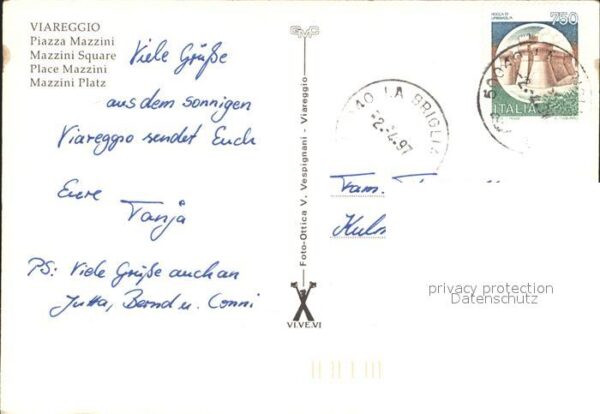 VIAREGGIO
Piazza Mazzini
Mazzini Square
Place Mazzini
Mazzini Platz
Viele Grüße
aus dem sonnigen
Viareggio sendet Euch
Eure
Tanja
PS: Viele Grüße auch an
Jutta, Bernd u. Conni
Foto-Ottica V. Vespignani - Viareggio
VI.VE.VI
ROCCA DI
URBISAGLIA
750
ITALIA
LA BRIGLIA
2.4.97
Fam.
privacy protection
Datenschutz